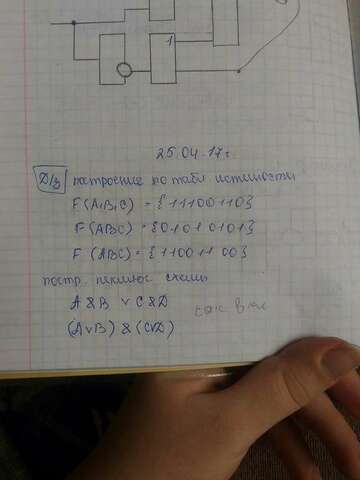 1
25.04.17г.
Д/з построение по табл истиности
F(A,B,C) = {11100110}
F(ABC) = {01010101}
F(ABC) = {11001100}
постр схемы
A&B ∨ C&D
(A∨B) & (C∨D)